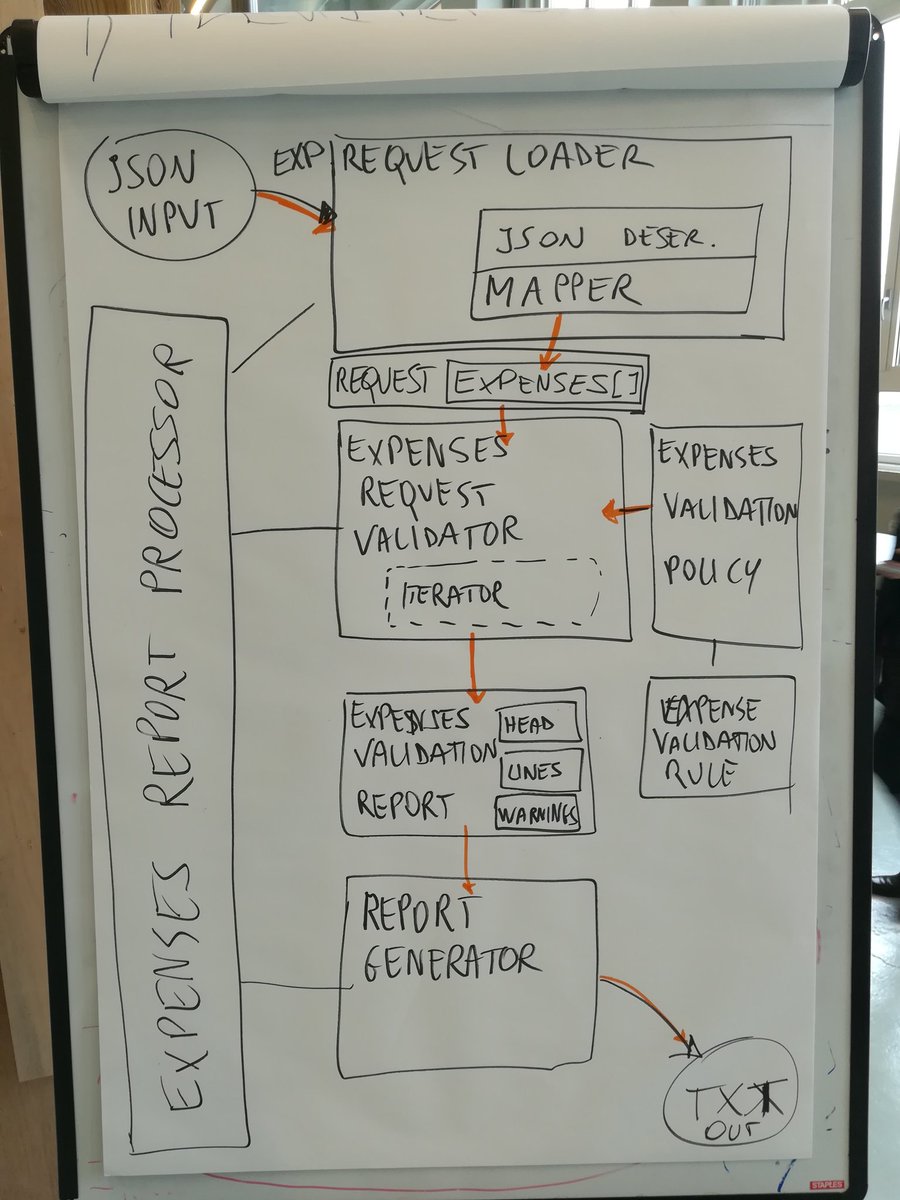 JSON
INPUT
EXP REQUEST LOADER
JSON DESER.
MAPPER
REQUEST EXPENSES[]
EXPENSES REPORT PROCESSOR
EXPENSES
REQUEST
VALIDATOR
ITERATOR
EXPENSES
VALIDATION
POLICY
EXPENSES
VALIDATION
REPORT
HEAD
LINES
WARNINGS
EXPENSE
VALIDATION
RULE
REPORT
GENERATOR
TXT
OUT
STAPLES